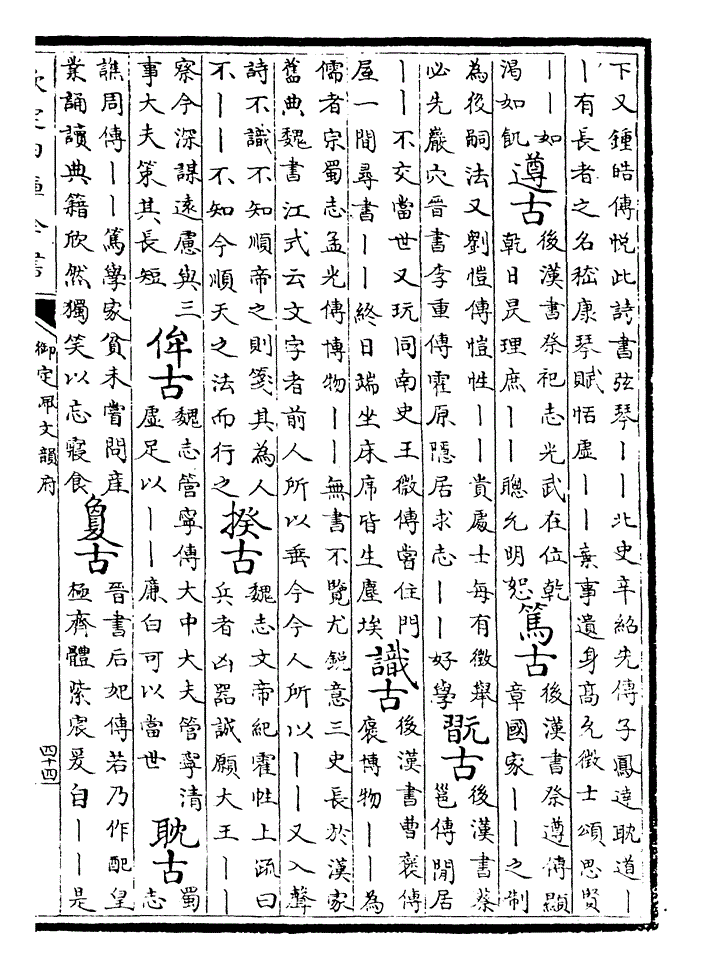 下又鍾皓傳悅此詩書弦琴丨丨北史辛紹先傳子鳳達耽道丨
丨有長者之名嵇康琴賦恬虛丨丨棄事遺身高允徵士頌思賢
丨丨如
渴如飢
遵古
後漢書祭祀志光武在位乾
乾日昃理庶丨丨聰允明恕
篤古
後漢書祭遵傳顯
章國家丨丨之制
為後嗣法又劉愷傳愷性丨丨貴處士每有徵舉
必先巖穴晉書李重傳霍原隱居求志丨丨好學
翫古
後漢書蔡
邕傳閒居
丨丨不交當世又玩同南史王微傳嘗住門
屋一間尋書丨丨終日端坐床席皆生塵埃
識古
後漢書曹褒傳
褒博物丨丨為
儒者宗蜀志孟光傳博物丨丨無書不覽尤銳意三史長於漢家
舊典魏書江式云文字者前人所以垂今今人所以丨丨又入聲
詩不識不知順帝之則箋其為人
不丨丨不知今順天之法而行之
揆古
魏志文帝紀霍性上疏曰
兵者凶器誠願大王丨丨
察今深謀遠慮與三
事大夫策其長短
侔古
魏志管寧傳大中大夫管寧清
虛足以丨丨廉白可以當世
耽古
蜀
志
譙周傳丨丨篤學家貧未嘗問產
業誦讀典籍欣然獨笑以忘寢食
敻古
晉書后妃傳若乃作配皇
極齊體紫宸爰自丨丨是
欽定四庫全書
御定佩文韻府
四十四